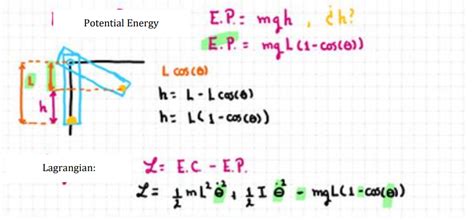 Potential Energy
E.P. = mgh , ¿h?
E.P. = mgL(1-cos(θ))
L
h
L cos(θ)
h = L - L cos(θ)
h = L(1-cos(θ))
Lagrangian:
ℒ = E.C - E.P.
ℒ = ½ m L² θ̇² + ½ I θ̇² - mgL(1-cos(θ))